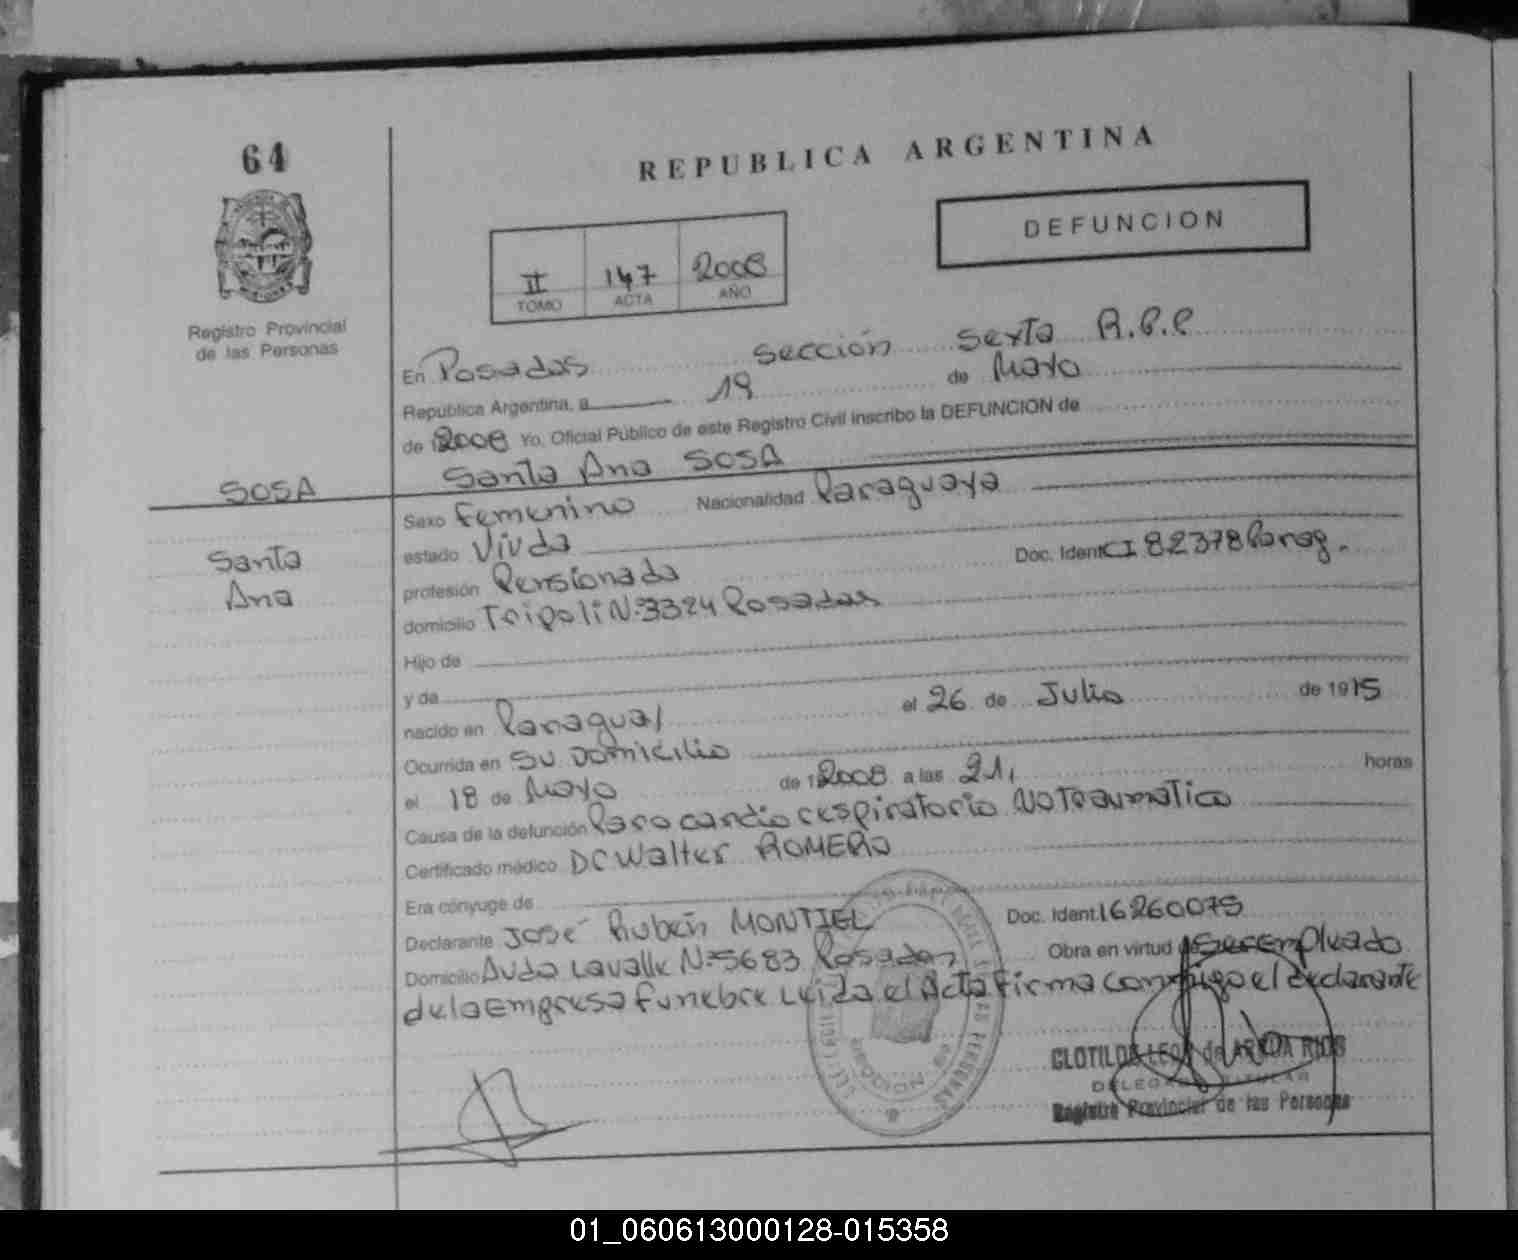 64
REPUBLICA ARGENTINA
DEFUNCION
II 147 2008
TOMO ACTA AÑO
Registro Provincial
de las Personas
En Posadas sección sexta R.P.P
República Argentina, a 19 de Mayo
de 12008 Yo, Oficial Público de este Registro Civil inscribo la DEFUNCION de
Santa Ana SOSA
SOSA
Santa
Ana
Sexo Femenino Nacionalidad Paraguaya
estado Viuda
profesión Pensionada Doc. Ident. CI 82378 Parag.
domicilio Tripoli Nº 3324 Posadas
Hijo de
y de
nacido en Paraguay el 26 de Julio de 1915
Ocurrida en su Domicilio
el 18 de Mayo de 12008 a las 21, horas
Causa de la defunción Paro cardio respiratorio NO Traumatico
Certificado médico Dr Walter ROMERO
Era cónyuge de
Declarante José Rubén MONTIEL Doc. Ident. 16260075
Domicilio Avda Lavalle Nº 5683 Posadas Obra en virtud de ser Empleado
de la Empresa funebre Leida el Acta Firma conmigo el declarante
CLOTILDA LEON de ARRUA RIOS
DELEGADA TITULAR
Registro Provincial de las Personas
01_060613000128-015358